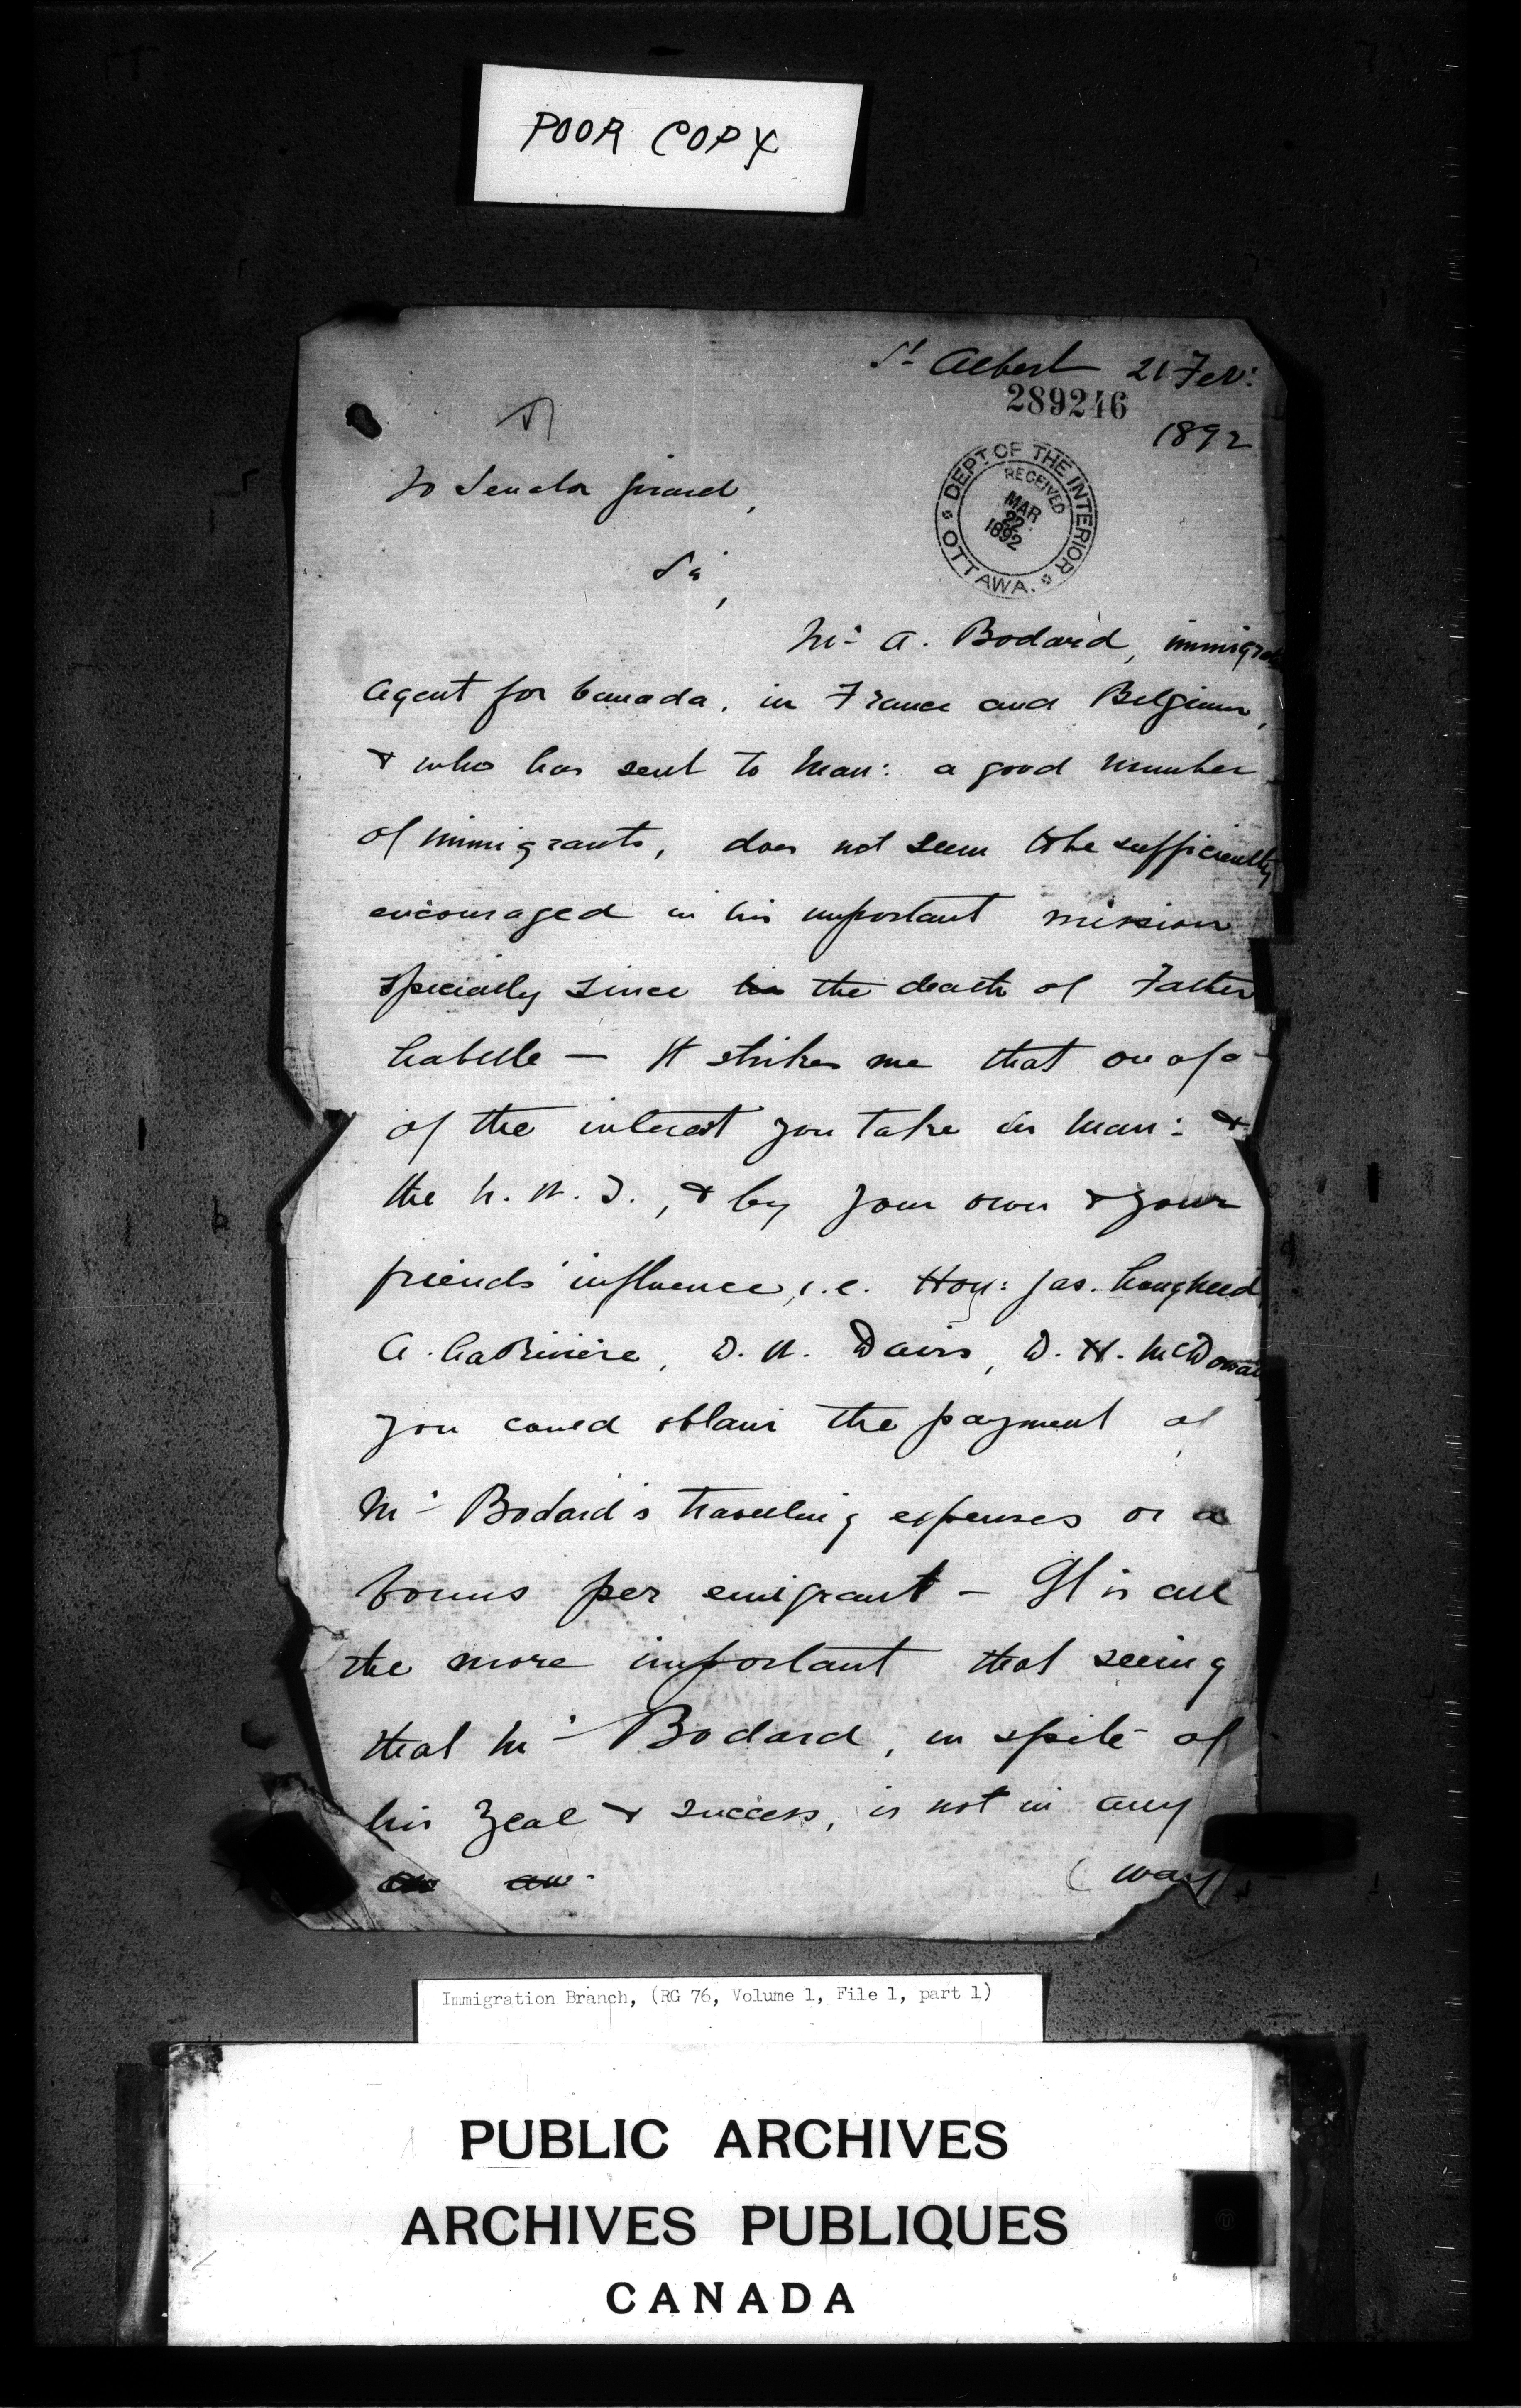 POOR COPY
St Albert 21 Feb:
289246
1892
To Senator Girard,
DEPT. OF THE INTERIOR
RECEIVED
MAR
22
1892
OTTAWA.
Sir,
Mr. A. Bodard, immigra
agent for Canada, in France and Belgium,
& who has sent to Man: a good number
of immigrants, does not seem to be sufficiently
encouraged in his important mission
specially since his the death of Father
Labelle — It strikes me that on a/c
of the interest you take in Man: &
the N. W. T., & by your own & your
friends' influence, i.e. Hon: Jas. Lougheed,
A. LaRivière, D. W. Davis, D. H. McDowall
you could obtain the payment of
Mr. Bodard's travelling expenses or a
bonus per emigrant — It is all
the more important that seeing
that Mr. Bodard, in spite of
his zeal & success, is not in any
(way
Immigration Branch, (RG 76, Volume 1, File 1, part 1)
PUBLIC ARCHIVES
ARCHIVES PUBLIQUES
CANADA